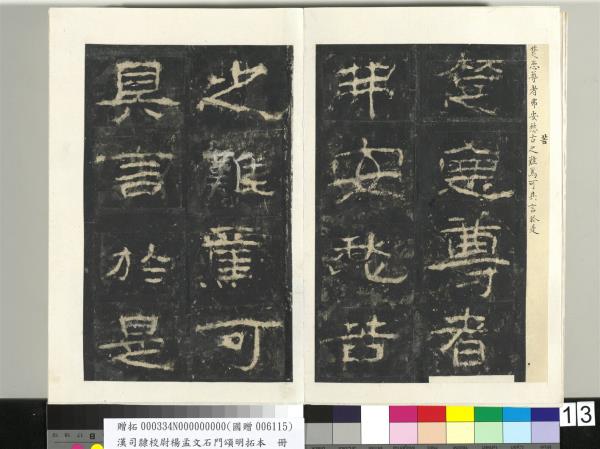 楚惡尊者弗安愁古之難焉可具言於是
苦
楚惡尊者
弗安愁苦
之難焉可
具言於是
贈拓 000334N000000000(國贈 006115)
漢司隸校尉楊孟文石門頌明拓本 冊
13
B